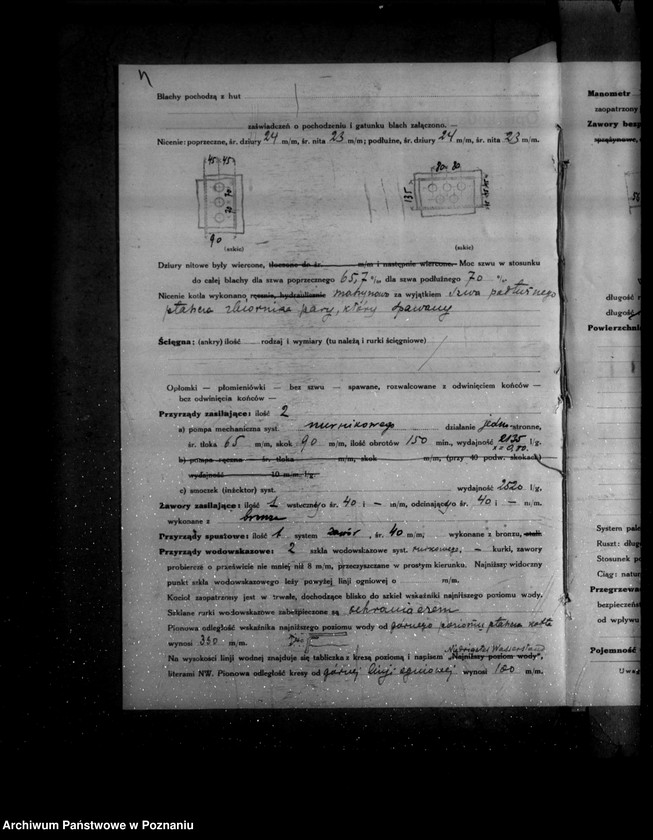 Blachy pochodzą z hut
zaświadczeń o pochodzeniu i gatunku blach załączono. —
Nicenie: poprzeczne, śr. dziury 24 m/m, śr. nita 23 m/m; podłużne, śr. dziury 24 m/m, śr. nita 23 m/m.
45 45
70
70
90
(szkic)
80 80
135
(szkic)
Dziury nitowe były wiercone, tłoczone do śr. m/m i następnie wiercone. Moc szwu w stosunku
do całej blachy dla szwa poprzecznego 65,7 % dla szwa podłużnego 70 %
Nicenie kotła wykonano ręcznie, hydraulicznie maszynowo za wyjątkiem szwa podłużnego
płaszcza zbiornika pary, który spawany
Ścięgna: (ankry) ilość rodzaj i wymiary (tu należą i rurki ścięgniowe)
Opłomki — płomieniówki — bez szwu — spawane, rozwalcowane z odwinięciem końców —
bez odwinięcia końców —
Przyrządy zasilające: ilość 2
a) pompa mechaniczna syst. nurnikowego działanie jedno-stronne,
śr. tłoka 65 m/m, skok 90 m/m, ilość obrotów 150 min., wydajność 2135 l/g.
x = 0,80.
b) pompa ręczna — śr. tłoka m/m, skok m/m, (przy 40 podw. skokach)
wydajność 10 m/m, l/g.
c) smoczek (inżektor) syst. wydajność 2520 l/g.
Zawory zasilające: ilość 1 wstecznego śr. 40 i — m/m, odcinającego śr. 40 i — m/m.
wykonane z bronzu
Przyrządy spustowe: ilość 1 system zawór, śr. 40 m/m; wykonane z bronzu, stali.
Przyrządy wodowskazowe: 2 szkła wodowskazowe syst. rurkowego, — kurki, zawory
probiercze o prześwicie nie mniej niż 8 m/m, przeczyszczane w prostym kierunku. Najniższy widoczny
punkt szkła wodowskazowego leży powyżej linji ogniowej o m/m.
Kocioł zaopatrzony jest w trwałe, dochodzące blisko do szkieł wskaźniki najniższego poziomu wody.
Szklane rurki wodowskazowe zabezpieczone są ochraniaczem
Pionowa odległość wskaźnika najniższego poziomu wody od górnego poziomu płaszcza kotła
wynosi 330 m/m.
Niedrigster Wasserstand
Na wysokości linji wodnej znajduje się tabliczka z kresą poziomą i napisem „Najniższy poziom wody",
literami NW. Pionowa odległość kresy od górnej linji ogniowej wynosi 100 m/m.
Manometr
zaopatrzony
Zawory bezp
sprężynowe,
50
długość r
długość
Powierzchnia
System pale
Ruszt: dług
Stosunek po
Ciąg: natur
Przegrzewac
bezpieczeńst
od wpływu
Pojemność
Uwag
Archiwum Państwowe w Poznaniu